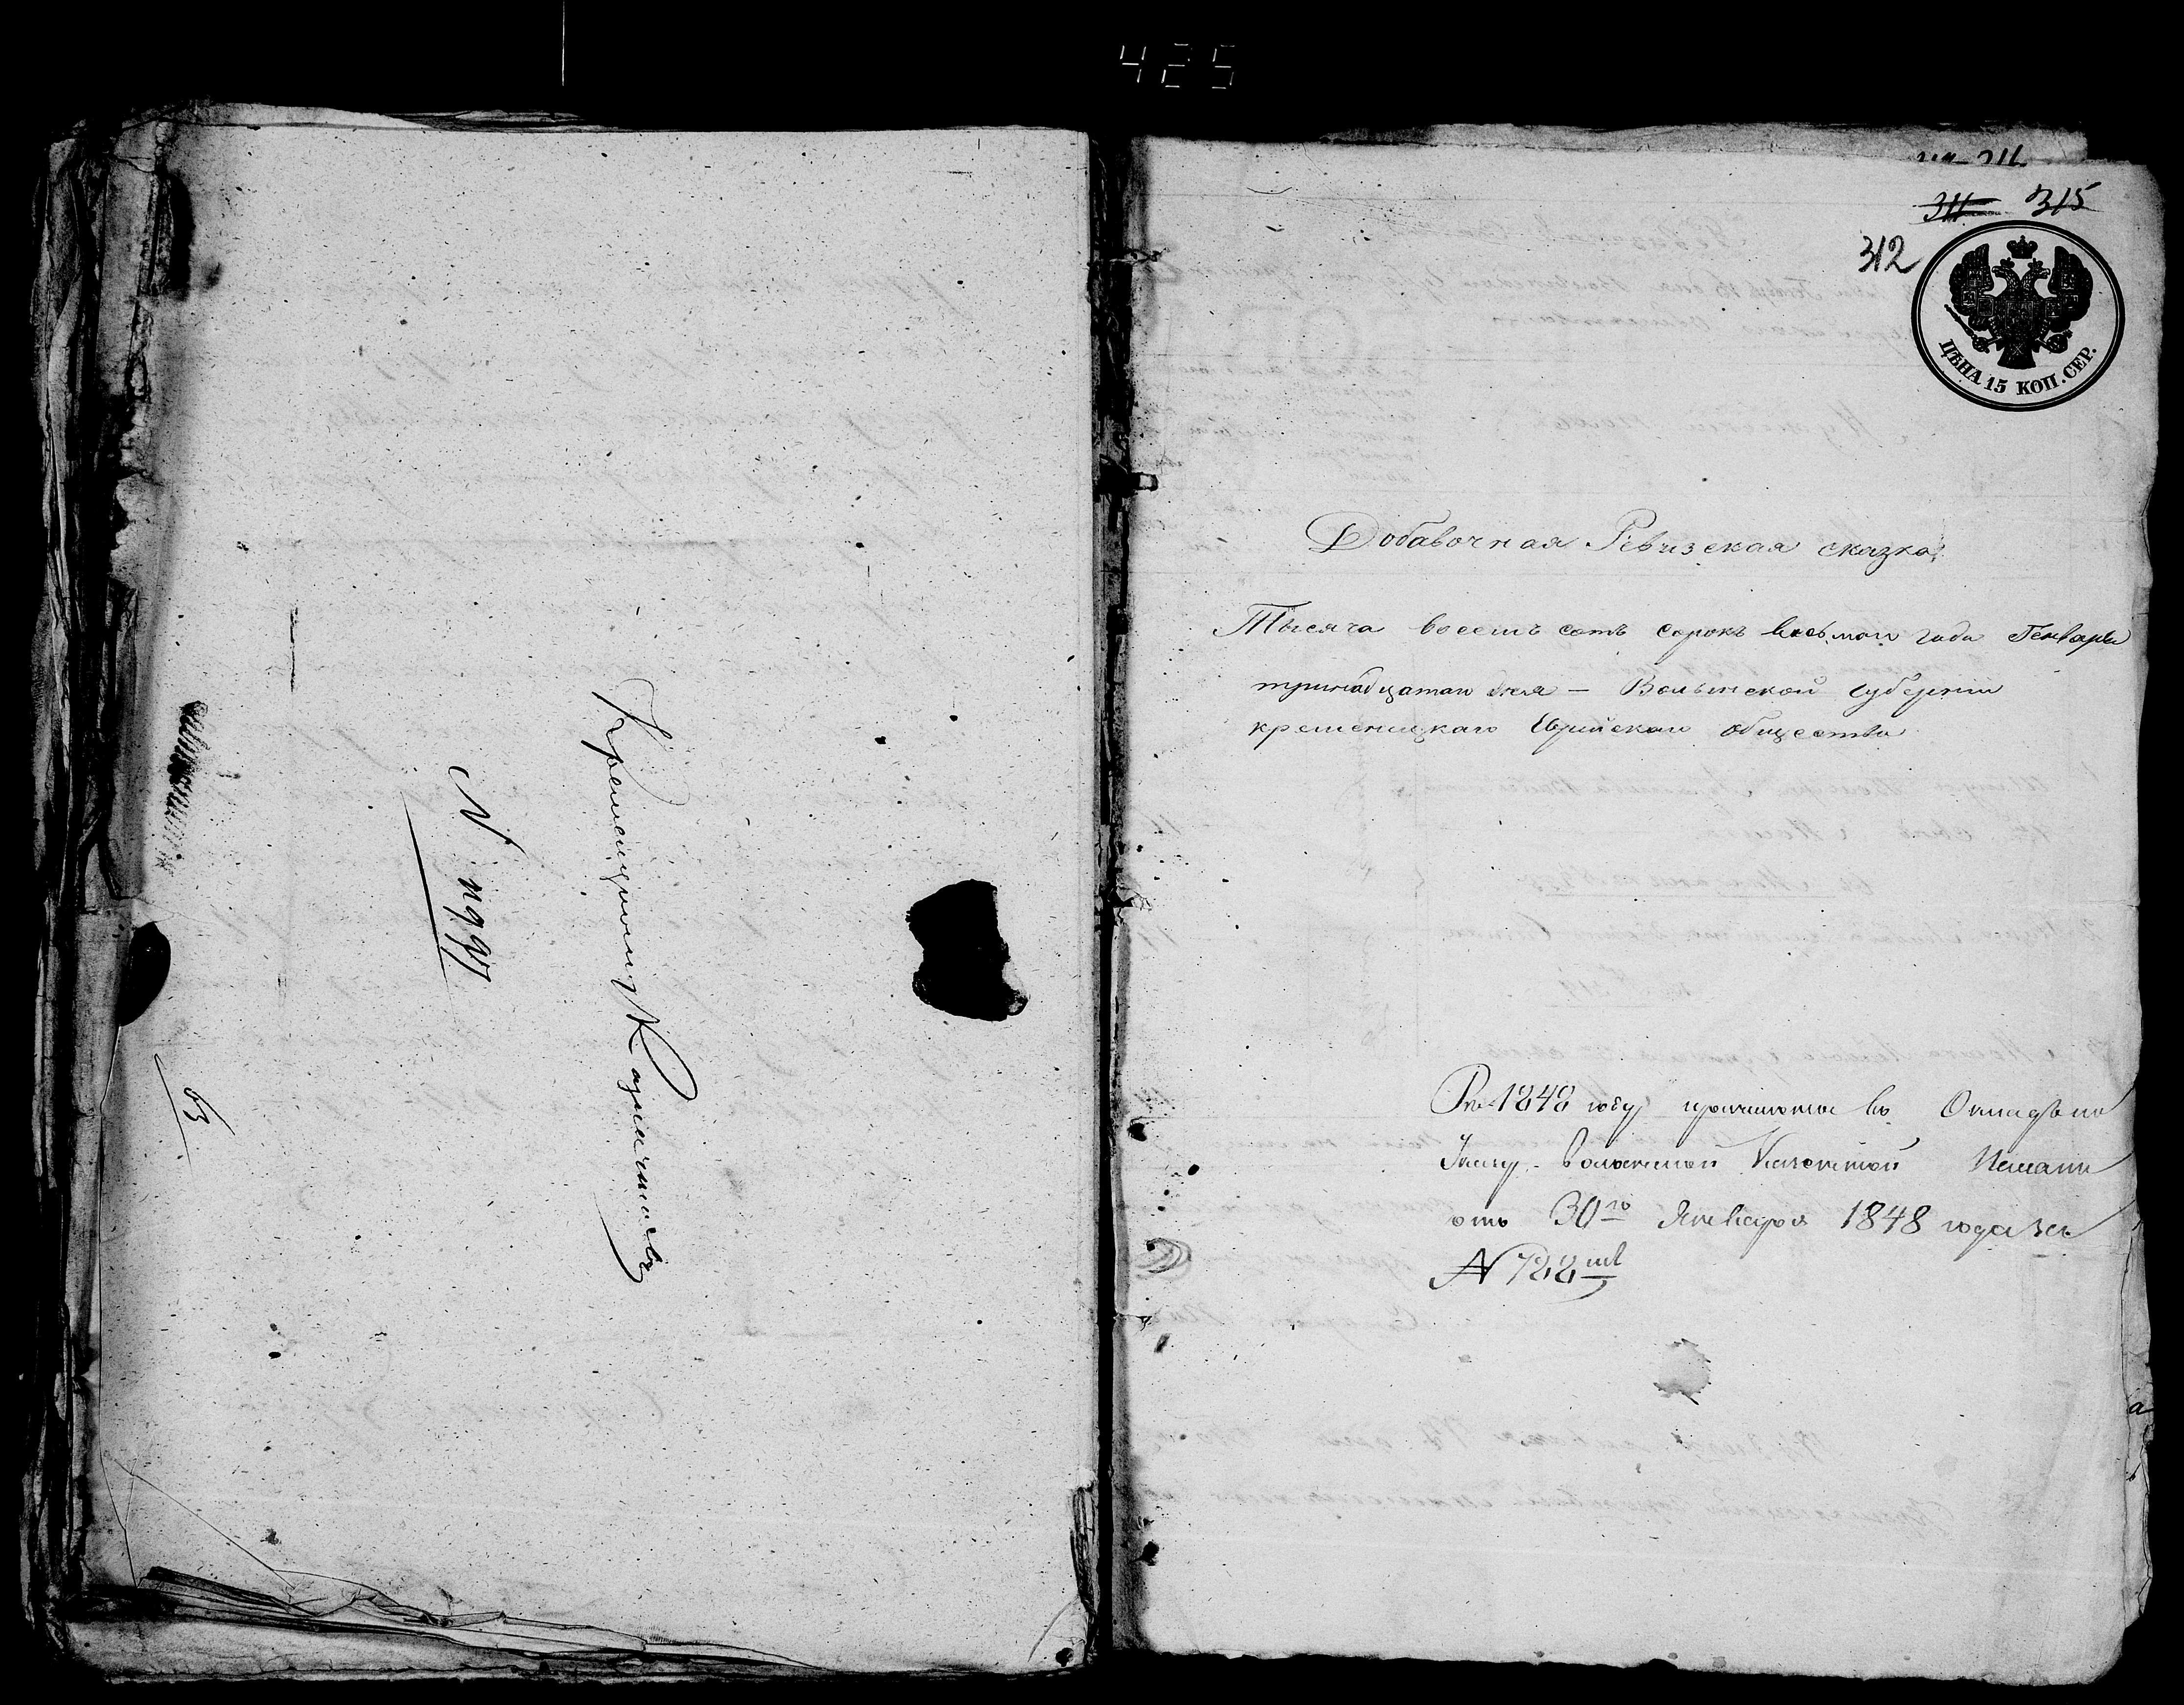 425
Кременецкому Казначейству
N
63
311 315
312
ЦѢНА 15 КОП. СЕР.
Добавочная Ревизская сказка
Тысяча восемь сотъ сорокъ восьмаго года Генваря
тринадцатаго дня – Волынской губернии
кременецкаго Еврейскаго общества
1848 году причислены въ Окладъ по
Указу Волынской Казенной Палаты
отъ 30го Января 1848 года за
N 788